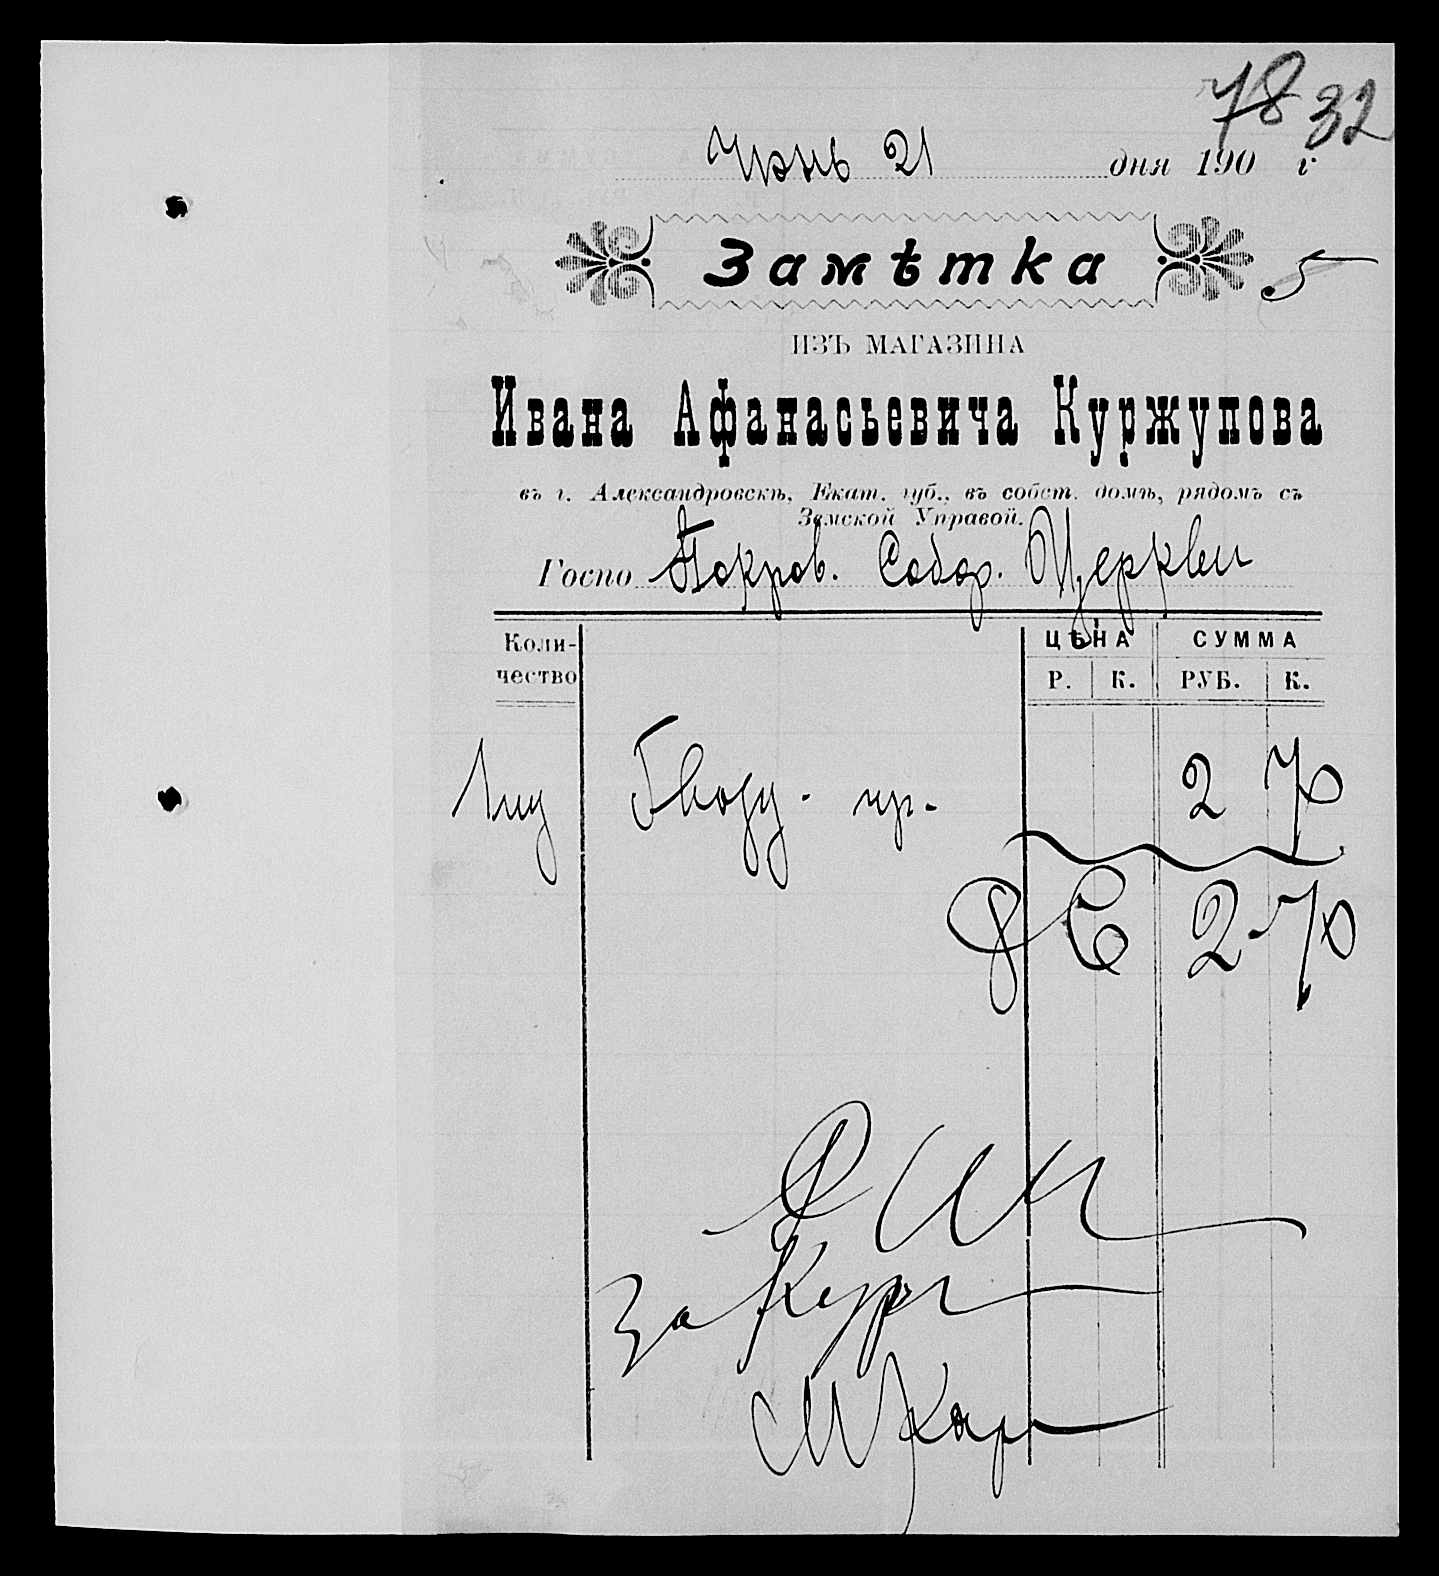 78 32
Июнь 21 дня 190 г
Замѣтка 5
ИЗЪ МАГАЗИНА
Ивана Афанасьевича Куржупова
въ г. Александровскѣ, Екат. губ., въ собст. домѣ, рядомъ съ
Земской Управой.
Госпо Покров. Собор. Церкви
Коли-
чество
ЦѢНА СУММА
Р. К. РУБ. К.
1 пуд Гвозд. 2 70
2-70
За Курж